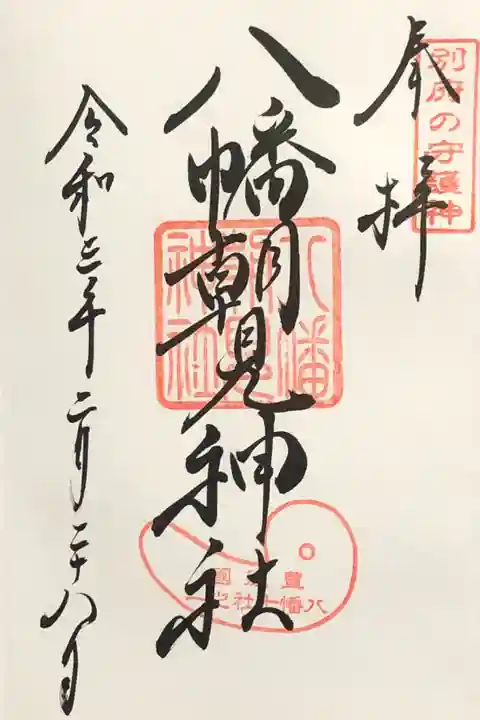 別府の守護神
奉拝
八幡朝見神社
八幡
朝見
神社
八幡十社之一
令和三年二月二十八日